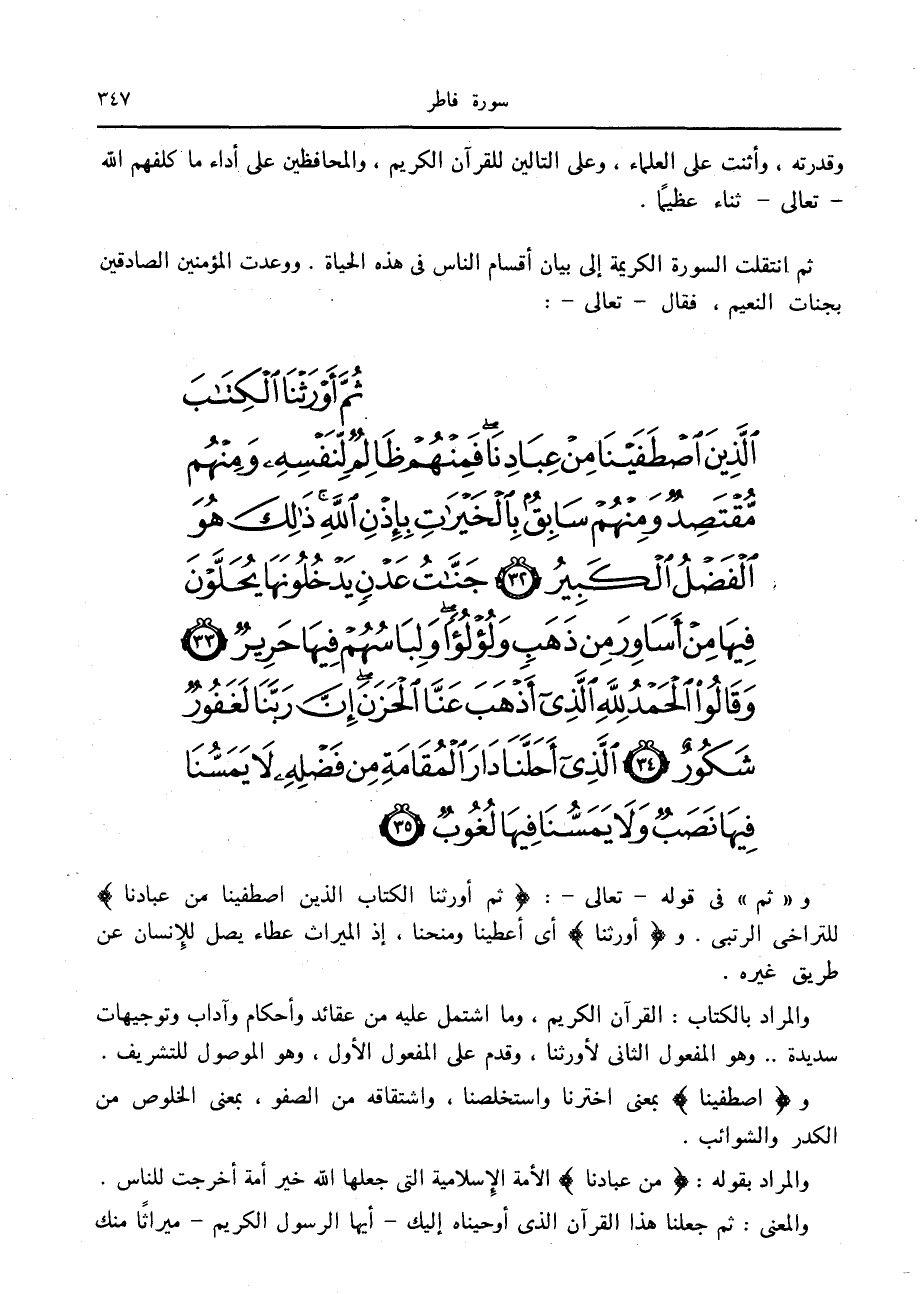 سورة فاطر
٣٤٧
وقدرته ، وأثنت على العلماء ، وعلى التالين للقرآن الكريم ، والمحافظين على أداء ما كلفهم الله
– تعالى – ثناء عظيمًا .
ثم انتقلت السورة الكريمة إلى بيان أقسام الناس فى هذه الحياة . ووعدت المؤمنين الصادقين
بجنات النعيم ، فقال – تعالى – :
ثُمَّ أَوْرَثْنَا ٱلْكِتَٰبَ
ٱلَّذِينَ ٱصْطَفَيْنَا مِنْ عِبَادِنَا ۖ فَمِنْهُمْ ظَالِمٌ لِّنَفْسِهِۦ وَمِنْهُم
مُّقْتَصِدٌ وَمِنْهُمْ سَابِقٌۢ بِٱلْخَيْرَٰتِ بِإِذْنِ ٱللَّهِ ۚ ذَٰلِكَ هُوَ
ٱلْفَضْلُ ٱلْكَبِيرُ ٣٢ جَنَّٰتُ عَدْنٍ يَدْخُلُونَهَا يُحَلَّوْنَ
فِيهَا مِنْ أَسَاوِرَ مِن ذَهَبٍ وَلُؤْلُؤًا ۖ وَلِبَاسُهُمْ فِيهَا حَرِيرٌ ٣٣
وَقَالُوا۟ ٱلْحَمْدُ لِلَّهِ ٱلَّذِىٓ أَذْهَبَ عَنَّا ٱلْحَزَنَ ۖ إِنَّ رَبَّنَا لَغَفُورٌ
شَكُورٌ ٣٤ ٱلَّذِىٓ أَحَلَّنَا دَارَ ٱلْمُقَامَةِ مِن فَضْلِهِۦ لَا يَمَسُّنَا
فِيهَا نَصَبٌ وَلَا يَمَسُّنَا فِيهَا لُغُوبٌ ٣٥
و « ثم » فى قوله – تعالى – : ﴿ ثم أورثنا الكتاب الذين اصطفينا من عبادنا ﴾
للتراخى الرتبى . و ﴿ أورثنا ﴾ أى أعطينا ومنحنا ، إذ الميراث عطاء يصل للإنسان عن
طريق غيره .
والمراد بالكتاب : القرآن الكريم ، وما اشتمل عليه من عقائد وأحكام وآداب وتوجيهات
سديدة .. وهو المفعول الثانى لأورثنا ، وقدم على المفعول الأول ، وهو الموصول للتشريف .
و ﴿ اصطفينا ﴾ بمعنى اخترنا واستخلصنا ، واشتقاقه من الصفو ، بمعنى الخلوص من
الكدر والشوائب .
والمراد بقوله : ﴿ من عبادنا ﴾ الأمة الإسلامية التى جعلها الله خير أمة أخرجت للناس .
والمعنى : ثم جعلنا هذا القرآن الذى أوحيناه إليك – أيها الرسول الكريم – ميراثًا منك